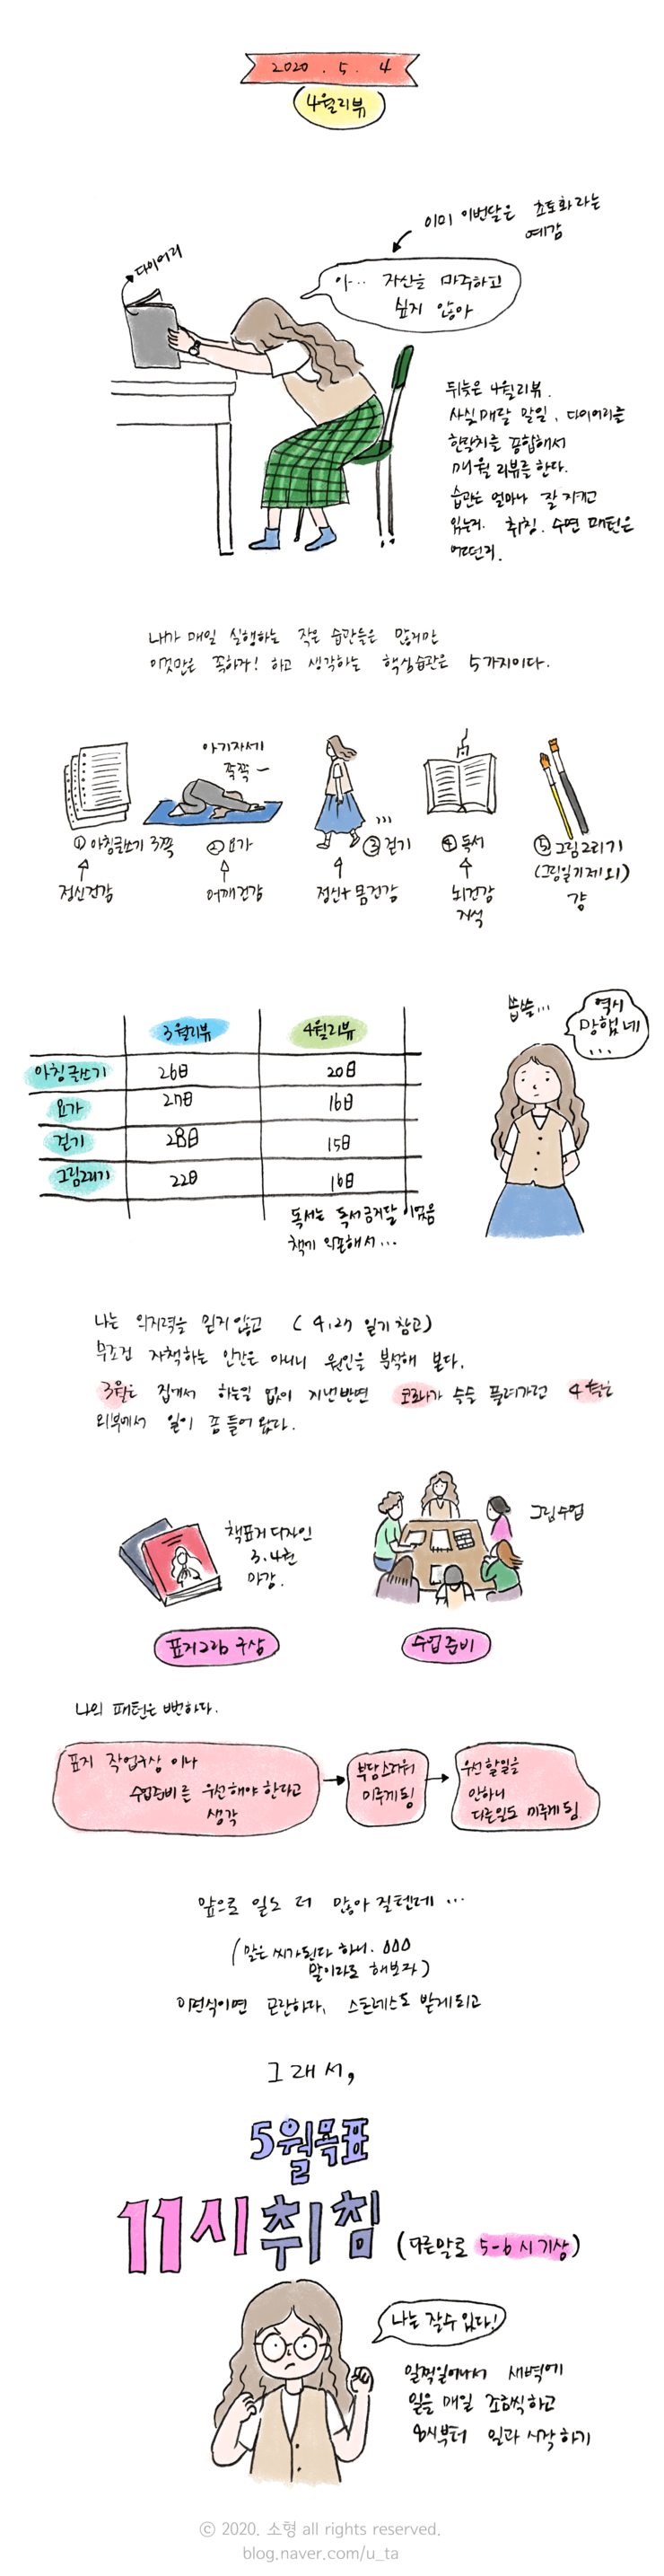 2020. 5. 4
4월리뷰
이미 이번달은 초토화라는
예감
다이어리
아… 자신을 마주하고
싶지 않아
뒤늦은 4월리뷰.
사실 매달 말일, 다이어리를
한달치를 종합해서
매월 리뷰를 한다.
습관은 얼마나 잘 지켜고
있는지. 취침. 수면 패턴은
어떤지.
내가 매일 실행하는 작은 습관들은 많지만
이것만은 꼭하자! 하고 생각하는 핵심습관은 5가지이다.
아기자세
쭉쭉 ~
① 아침글쓰기 3쪽
② 요가
③ 걷기
④ 독서
⑤ 그림그리기
(그림일기제외)
정신건강
어깨건강
정신+몸건강
뇌건강
지식
걍
3월리뷰 4월리뷰
아침글쓰기 26일 20일
요가 27일 16일
걷기 28일 15일
그림그리기 22일 16일
독서는 독서금지달 이었음
책에 의존해서…
씁쓸…
역시
망했네
...
나는 의지력을 믿지않고 (4.27 일기참고)
무조건 자책하는 인간은 아니니 원인을 분석해 본다.
3월은 집에서 하는일 없이 지낸반면 코로나가 슬슬 풀려가던 4월은
외부에서 일이 좀 들어왔다.
책표지 디자인
3.4권
마감.
그림수업
표지그림 구상
수업준비
나의 패턴은 뻔하다.
표지 작업구상 이나
수업준비를 우선해야 한다고
생각
부담스러워
미루게됨
우선 할일을
안하니
다른일도 미루게됨
앞으로 일도 더 많아 질텐데 …
(말은 씨가된다 하니.
말이라도 해보자)
이런식이면 곤란하다. 스트레스도 받게되고
그래서,
5월목표
11시취침
(다른말로 5-6시기상)
나는 잘수 있다!
일찍일어나서 새벽에
일을 매일 조금씩하고
8시부터 일과 시작하기
© 2020. 소형 all rights reserved.
blog.naver.com/u_ta